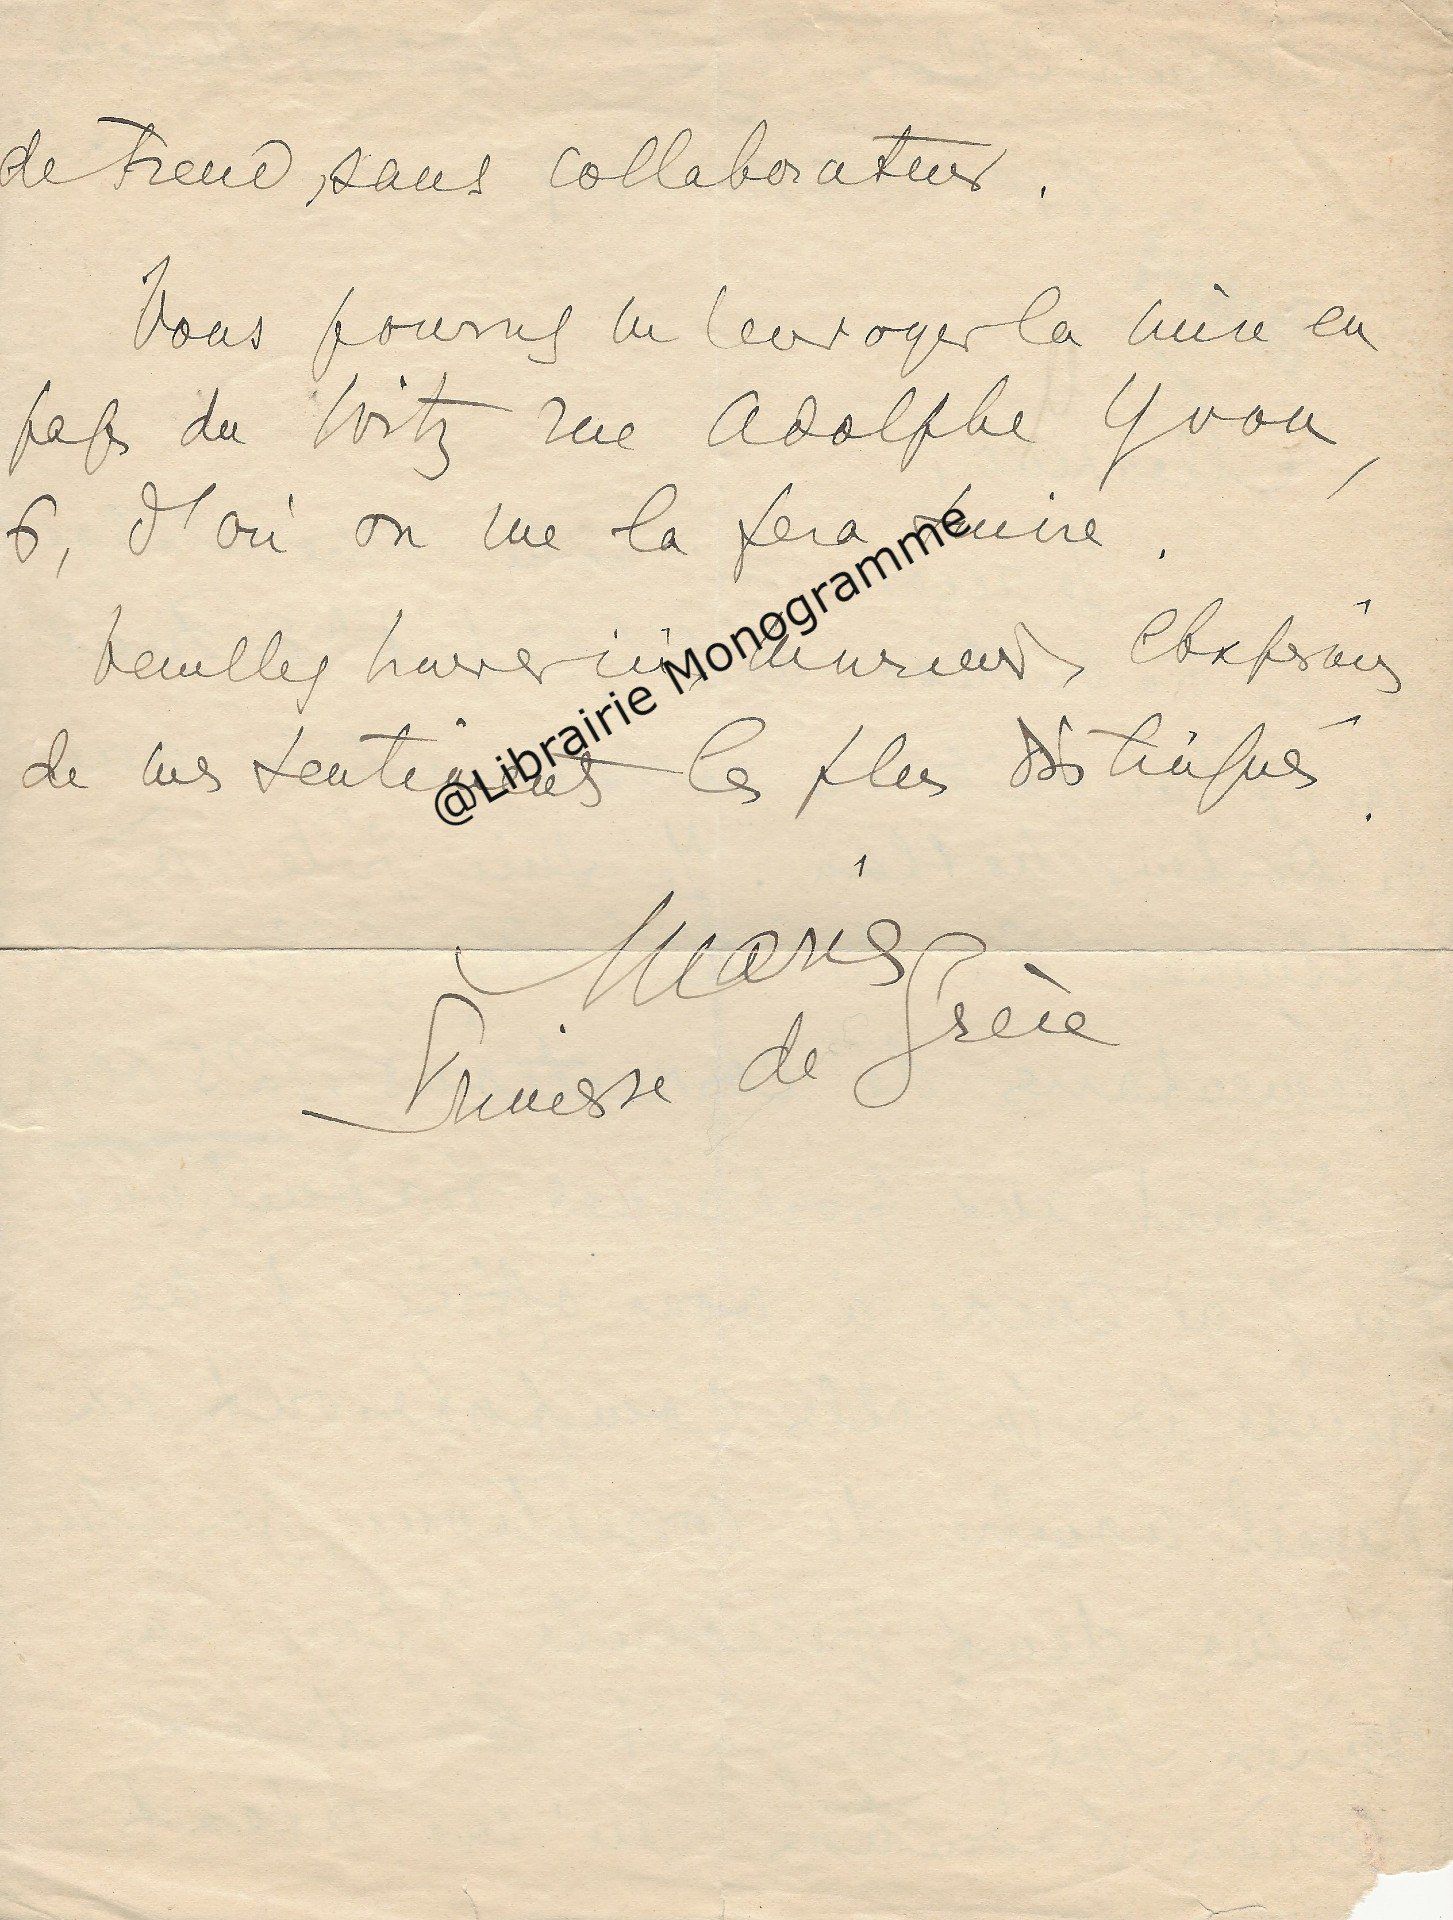 de Freud, sans collaborateur.
Vous pourrez me renvoyer la mise en
pages du Witz rue Adolphe Yvon,
6, d'où on me la fera suivre.
Veuillez trouver ici, Monsieur, l'expression
de mes sentiments les plus distingués.
@Librairie Monogramme
Marie
Princesse de Grèce